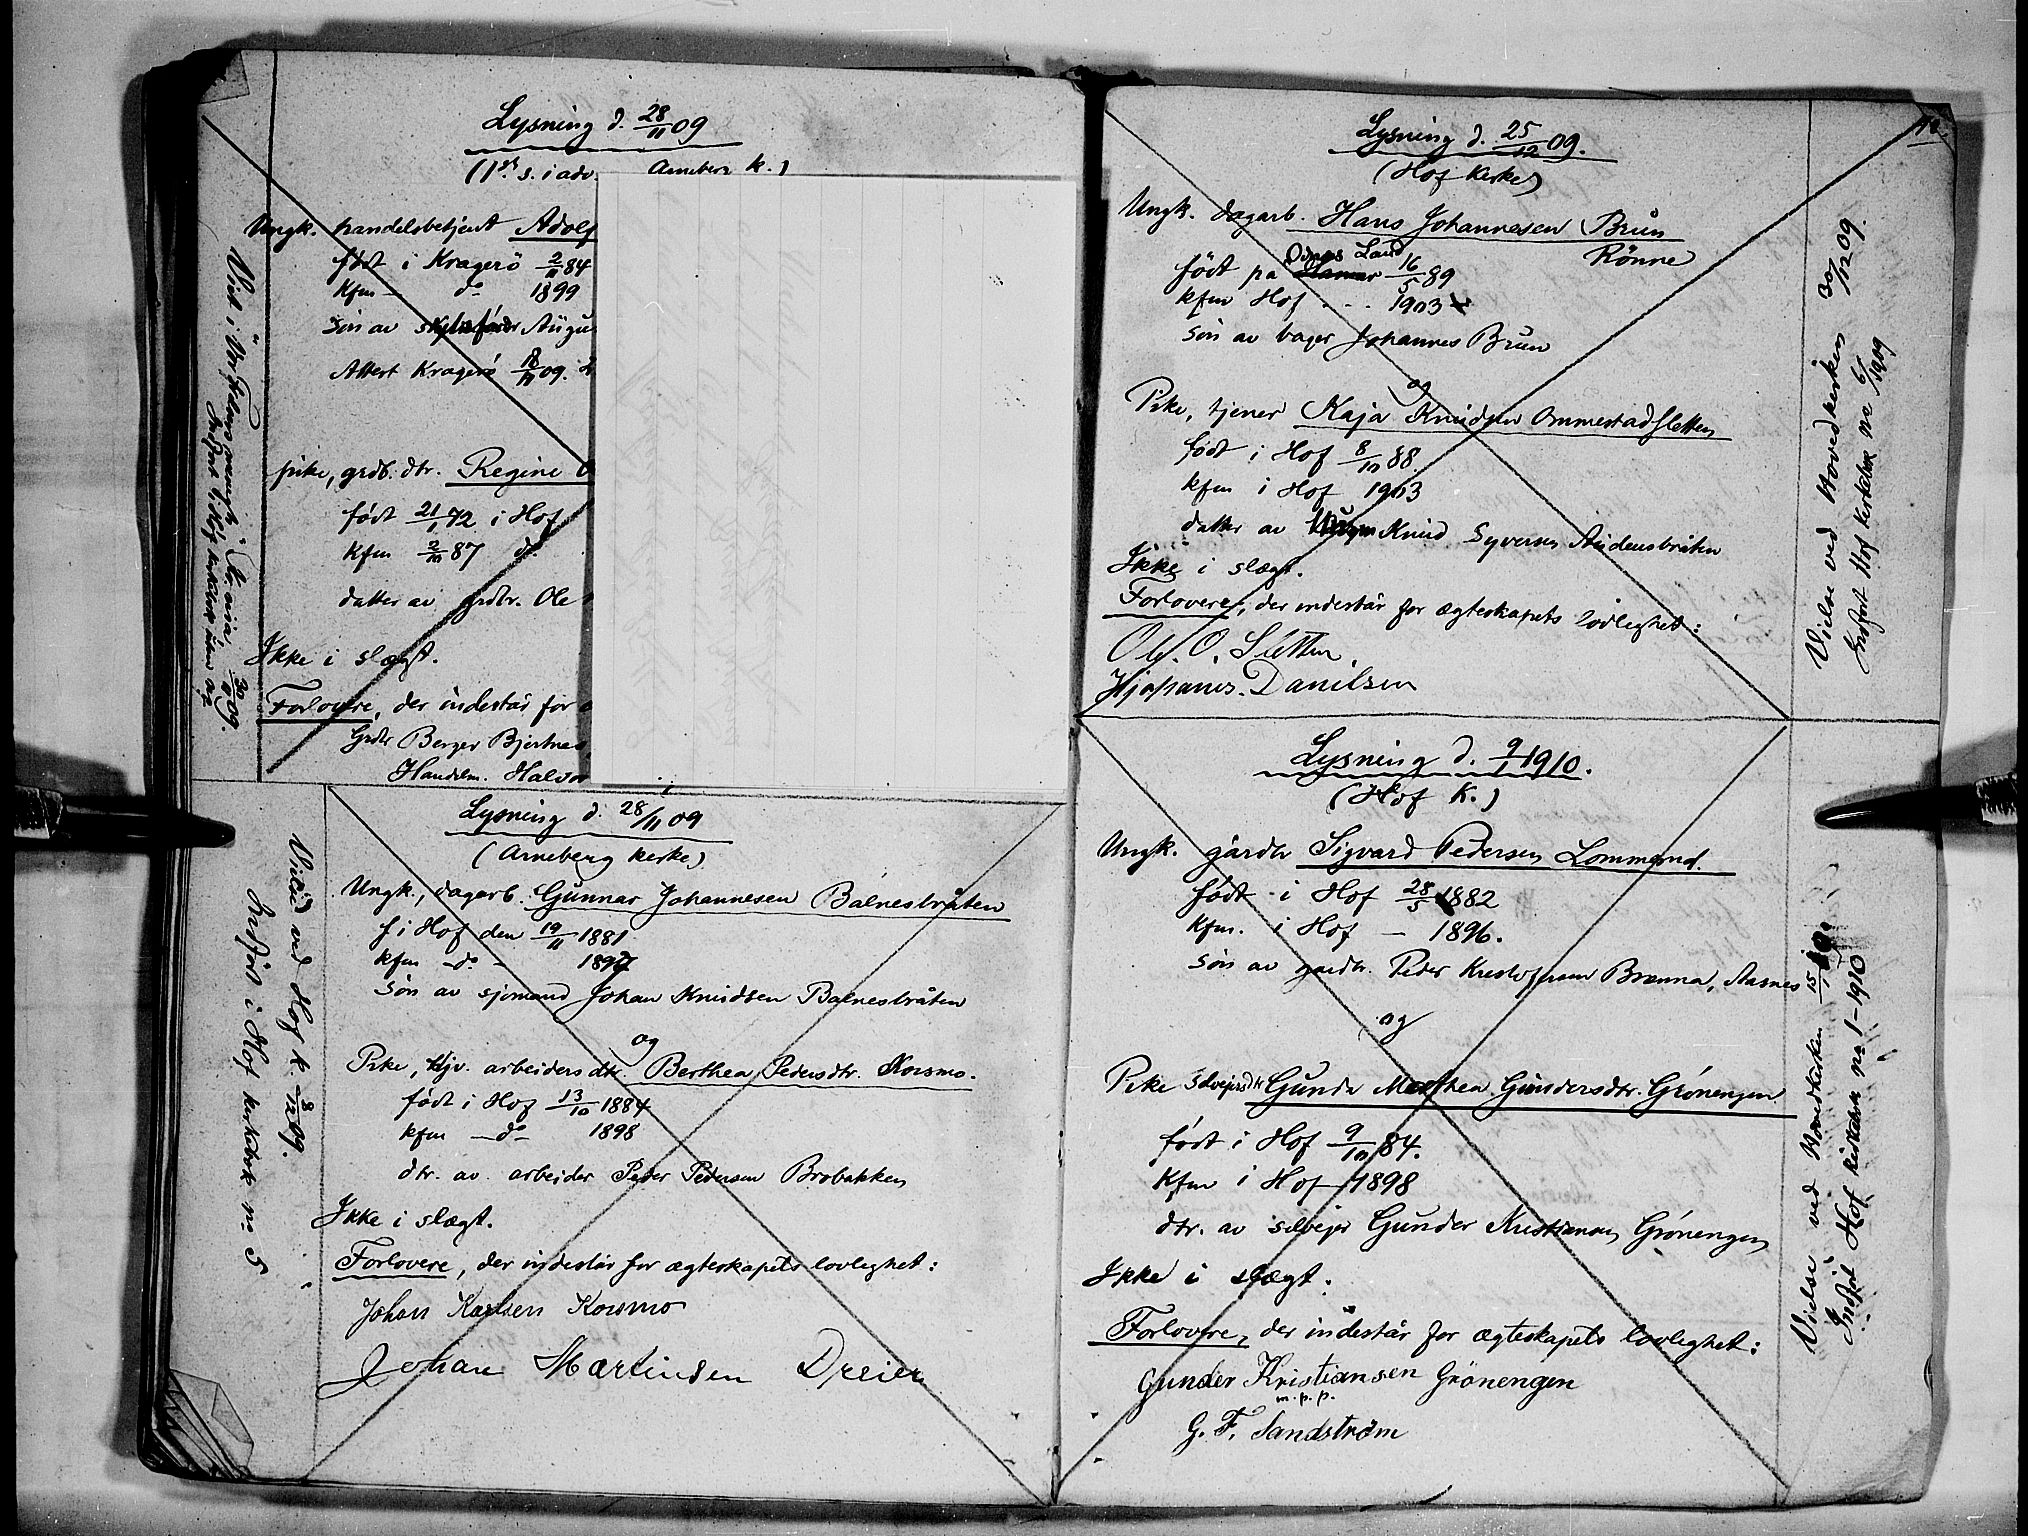 Lysning d. 28/11 09
(1ste s. i adv. Arneberg k.)
Ungk. handelsbetjent Adolf
født i Kragerö 2/11 84
Kfm — do 1899
sön av Augu
Attest Kragerö 09.
pike, grdb. dtr. Regine
født 21/1 72 i Hof
Kfm 87 do
datter av grdbr. Ole
Ikke i slægt.
Forlovere, der indestår for
Grdbr Berger Bjertnes
Handelm. Halvor
Viet i Vor Frelsers menighet, Kr.ania 30/11 09.
Indført i Hof kirkebok uten no
Lysning d. 28/11 09
(Arneberg kirke)
Ungk., dagarb. Gunnar Johannesen Balnesbråten
f. i Hof den 19/11 1881
kfm — do — 1897
Sön av sjömand Johan Knudsen Balnesbråten
og
Pike, arbeiders dtr. Berthea Pedersdtr. Korsmo.
født i Hof 13/10 1884
kfm — do — 1898
dtr. av arbeider Peder Pedersen Brobakken
Ikke i slægt.
Forlovere, der indestår for ægteskapets lovlighet:
Johan Karlsen Korsmo
Johan Martinsen Dreier
Viet ved Hof k. 8/12 09.
Indført i Hof kirkebok no 5
Lysning d. 25/12 09.
(Hof kirke)
Ungk. dagarb. Hans Johannesen Brun
Rönne
født på Odnes Land 16/5 89
kfm Hof . . . 1903
sön av bager Johannes Brun
og
Pike, tjener Kaja Knudsen Ommestadsletten
født i Hof 8/10 88
kfm i Hof 1903
datter av Knud Syversen Audensbråten
Ikke i slægt.
Forlovere, der indestår for ægteskapets lovlighet:
Ole. O. Sletten.
Danielsen
Vielse ved Hovedkirken 30/12 09.
Indført Hof kirkebok no 6/1909
Lysning d. 9/1 1910.
(Hof K.)
Ungk. gårdbr Sigvard Pedersen Lommerud.
født i Hof 28/5 1882
kfm. i Hof — 1896.
sön av gardbr. Peder Kristofersen Brenna, Aasnes
og
Pike selveiersdtr Gunda Mathea Gundersdtr. Grönengen
født i Hof 9/10 84.
Kfm i Hof 1898
dtr. av selveier Gunder Kristiansen Grönengen
Ikke i slægt.
Forlovere, der indestår for ægteskapets lovlighet:
Gunder Kristiansen Grönengen
m.p.p.
G. F. Sandström
Vielse ved Hovedkirken 15/1
Indført Hof kirkebok no 1 – 1910